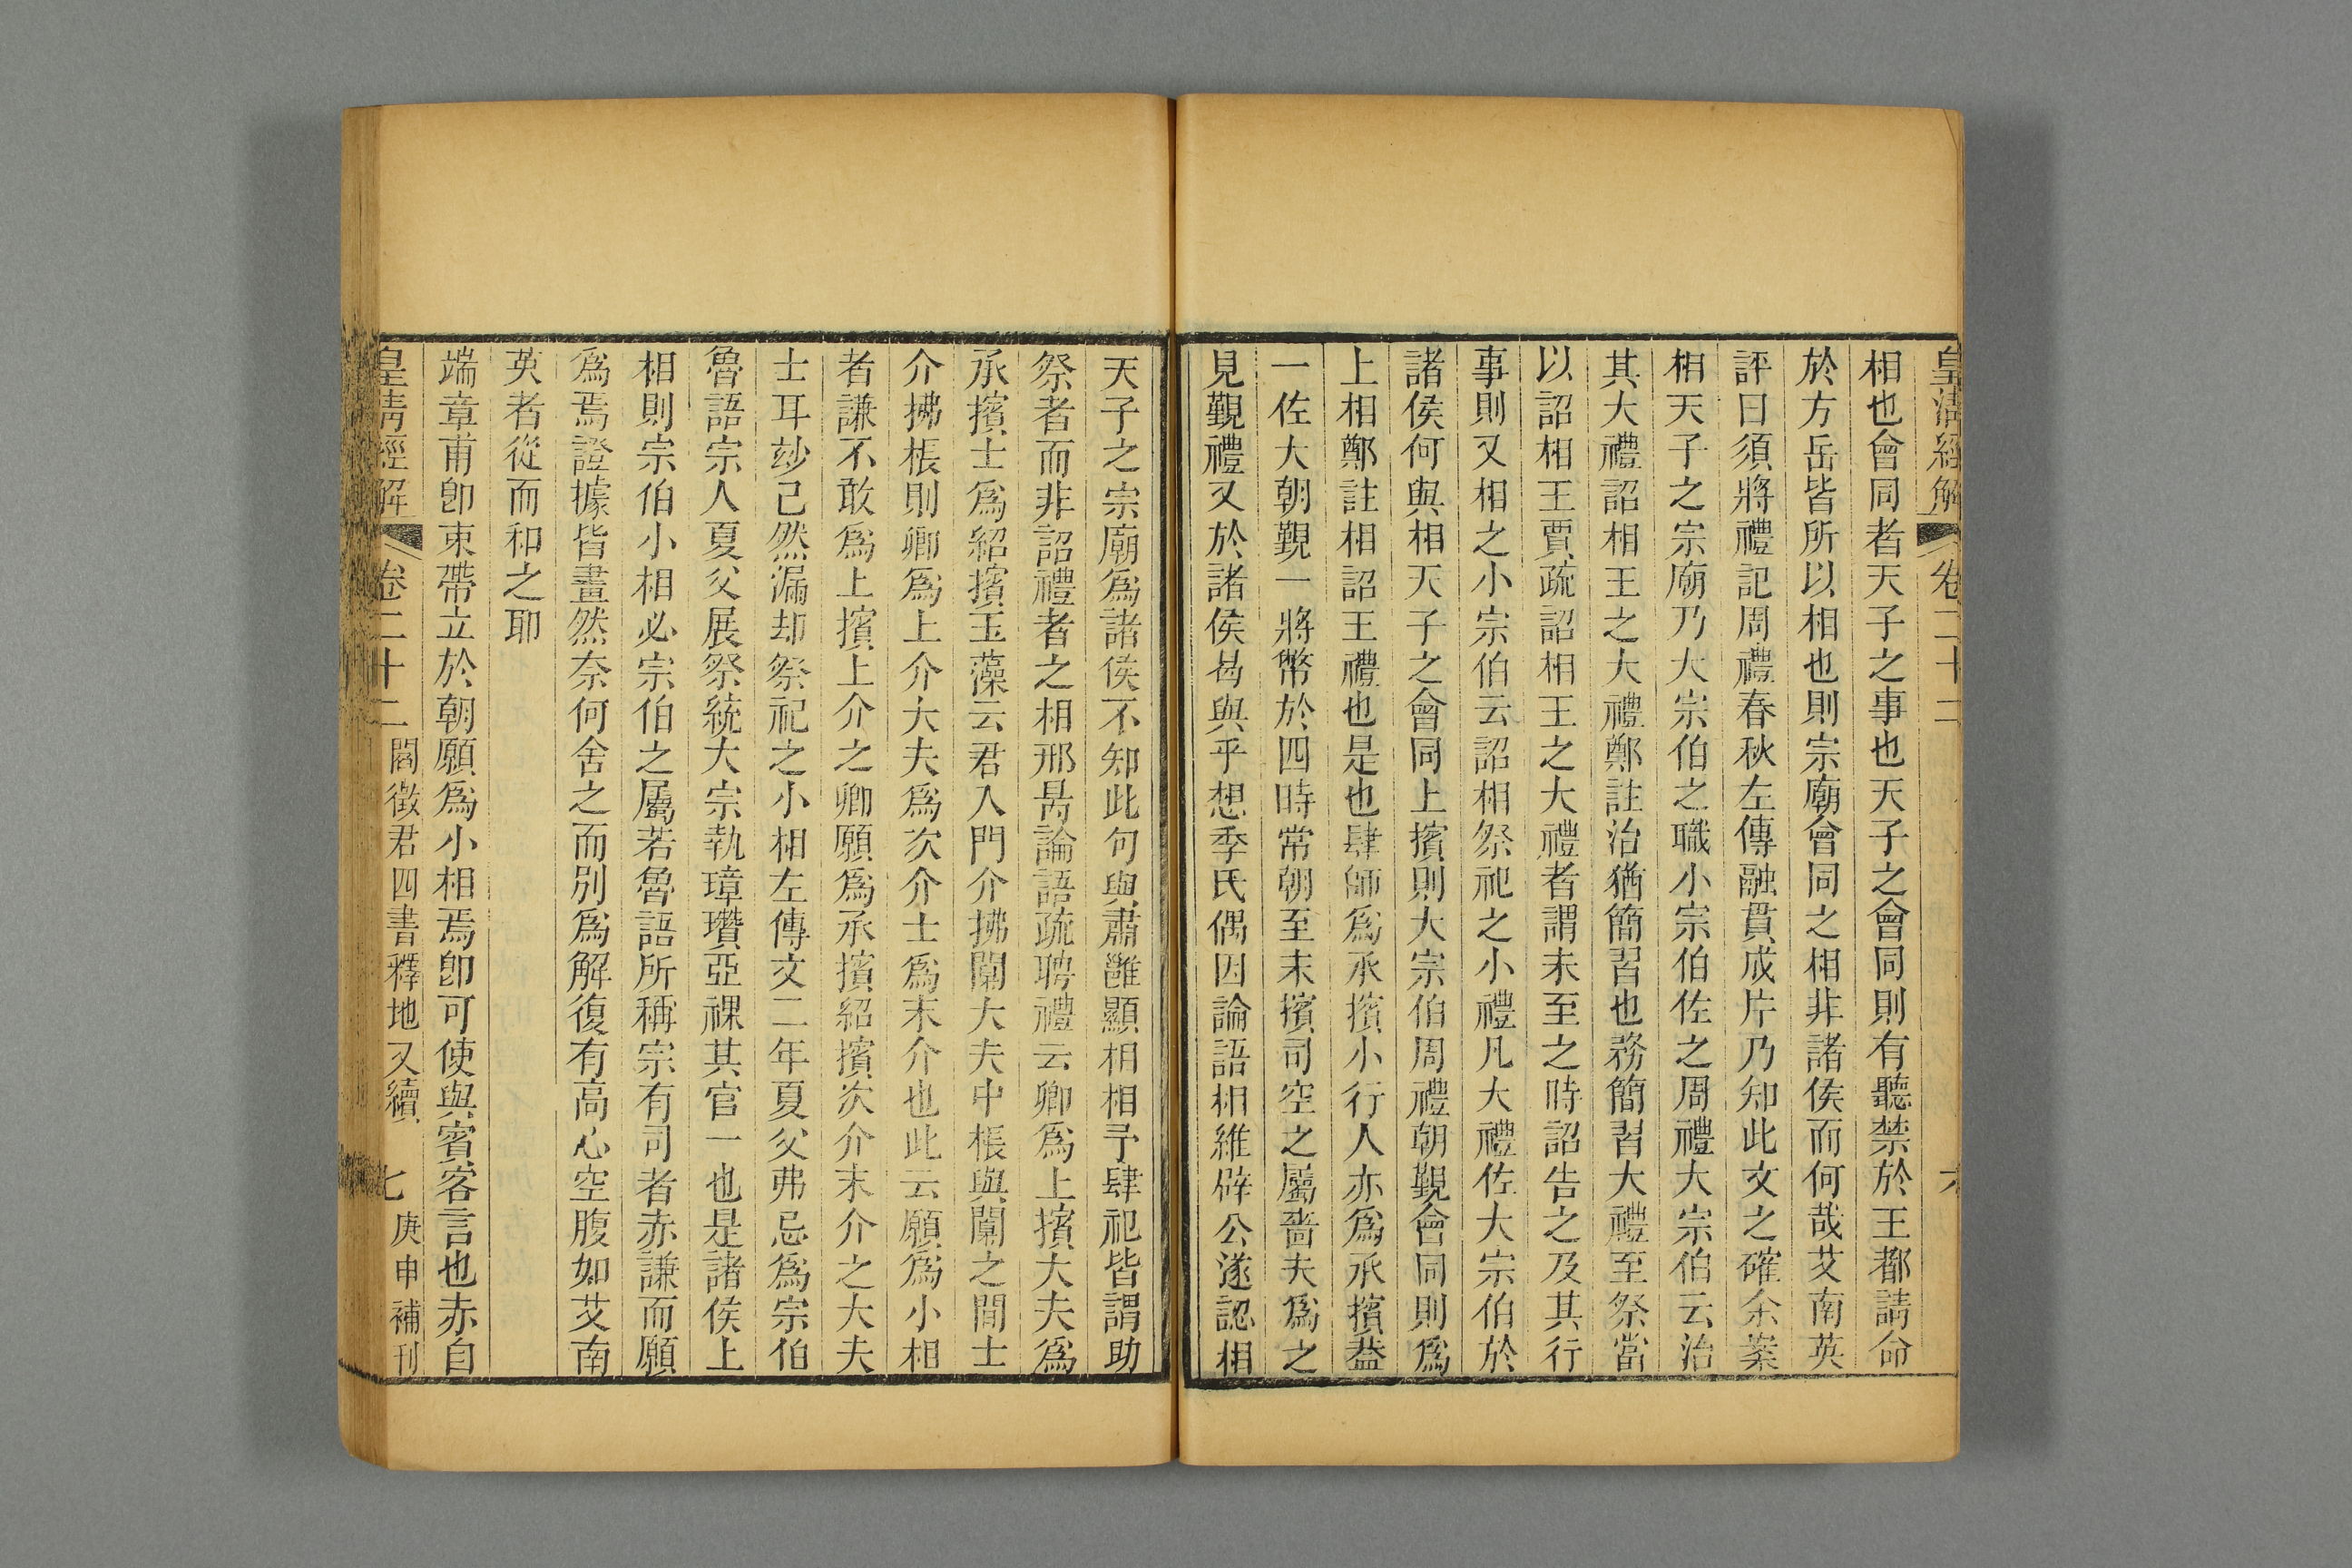 皇清經解 卷二十二 六
相也會同者天子之事也天子之會同則有聽禁於王都請命
於方岳皆所以相也則宗廟會同之相非諸侯而何哉艾南英
評曰須將禮記周禮春秋左傳融貫成片乃知此文之確余案
相天子之宗廟乃大宗伯之職小宗伯佐之周禮大宗伯云治
其大禮詔相王之大禮鄭註治猶簡習也務簡習大禮至祭當
以詔相王賈疏詔相王之大禮者謂未至之時詔告之及其行
事則又相之小宗伯云詔相祭祀之小禮凡大禮佐大宗伯於
諸侯何與相天子之會同上擯則大宗伯周禮朝覲會同則爲
上相鄭註相詔王禮也是也肆師爲承擯小行人亦爲承擯葢
一佐大朝覲一將幣於四時常朝至末擯司空之屬嗇夫爲之
見覲禮又於諸侯曷與乎想季氏偶因論語相維辟公遂認相
天子之宗廟爲諸侯不知此句與肅雝顯相相予肆祀皆謂助
祭者而非詔禮者之相邢昺論語疏聘禮云卿爲上擯大夫爲
承擯士爲紹擯玉藻云君入門介拂闑大夫中棖與闑之閒士
介拂棖則卿爲上介大夫爲次介士爲末介也此云願爲小相
者謙不敢爲上擯上介之卿願爲承擯紹擯次介末介之大夫
士耳玅已然漏却祭祀之小相左傳文二年夏父弗忌爲宗伯
魯語宗人夏父展祭統大宗執璋瓚亞祼其官一也是諸侯上
相則宗伯小相必宗伯之屬若魯語所稱宗有司者赤謙而願
爲焉證據皆晝然奈何舍之而別爲解復有高心空腹如艾南
英者從而和之耶
端章甫卽束帶立於朝願爲小相焉卽可使與賓客言也赤自
皇清經解 卷二十二 閻徵君四書釋地又續 七 庚申補刊